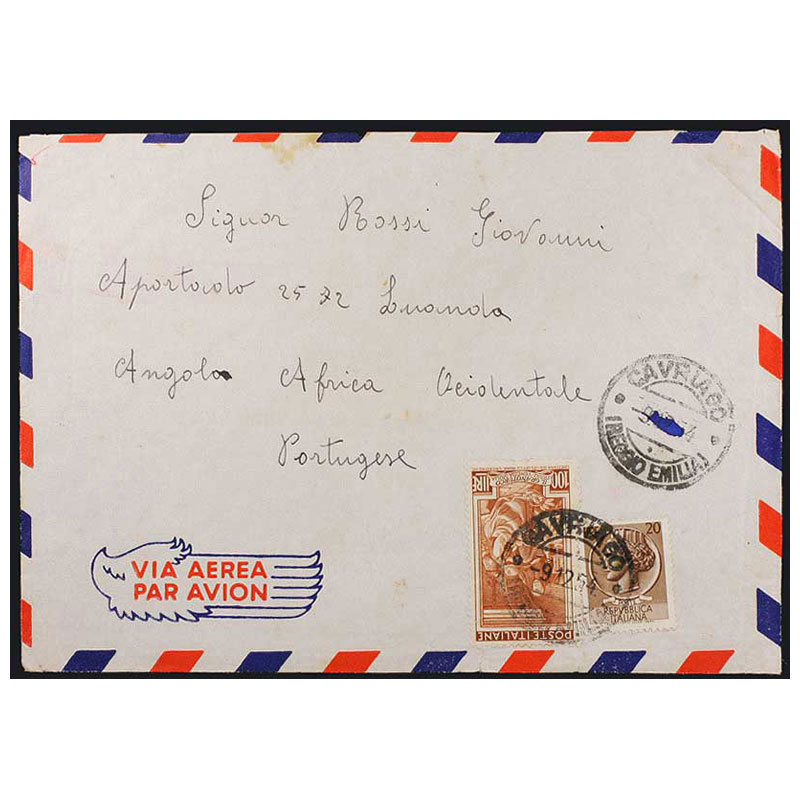 Signor Rossi Giovanni
Aportado 2572 Luanda
Angola Africa Ocidentale
Portugese
CAVRIAGO
(REGGIO EMILIA)
100 LIRE
POSTE ITALIANE
CAVRIAGO
-9.12.54
20
REPVBBLICA
ITALIANA
VIA AEREA
PAR AVION